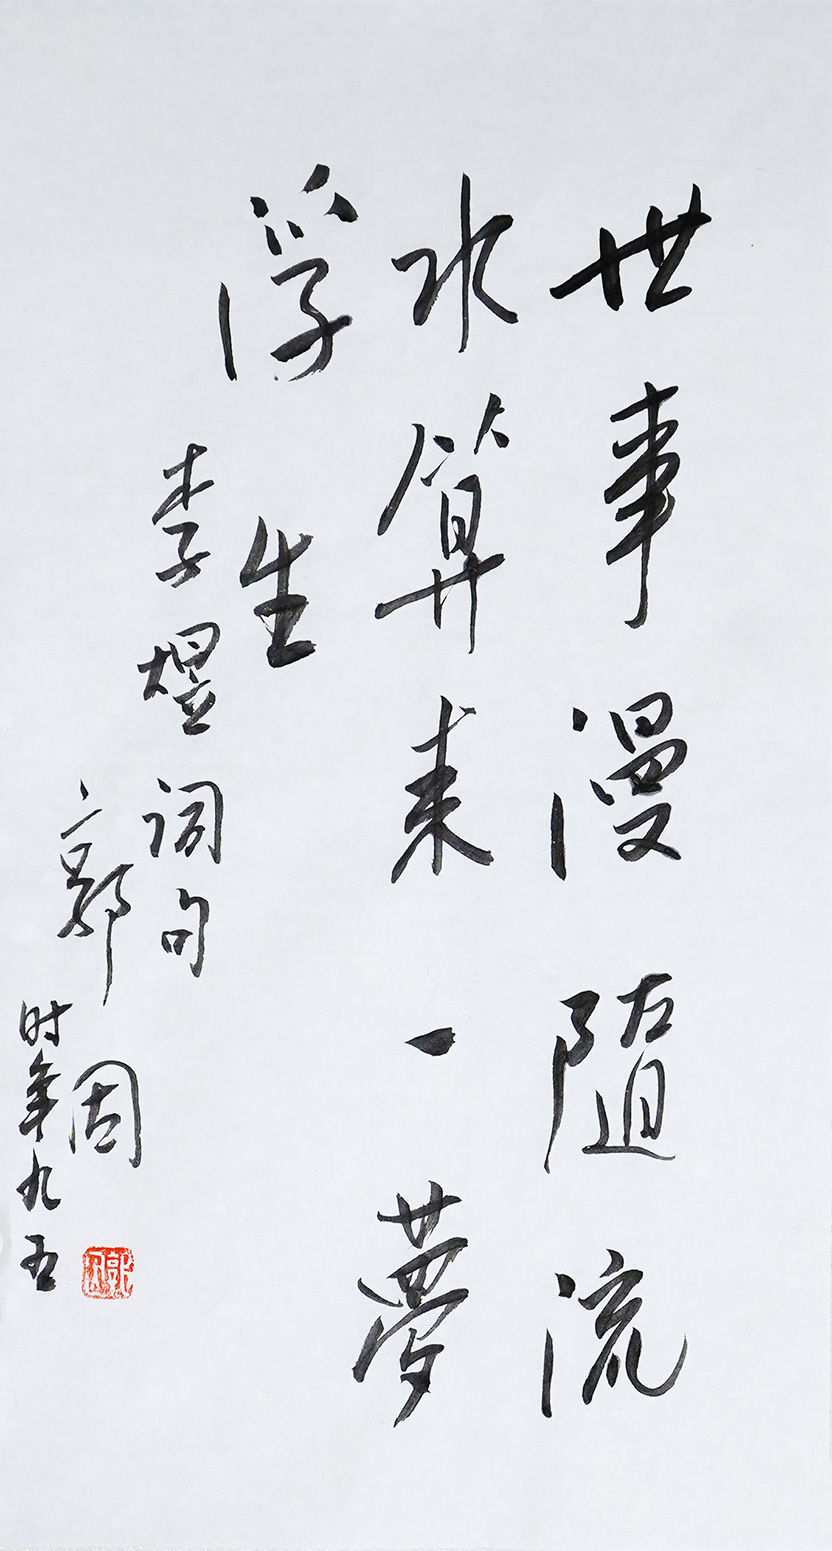 世事漫隨流
水算来一夢
浮生
李煜词句
郭因
时年九五